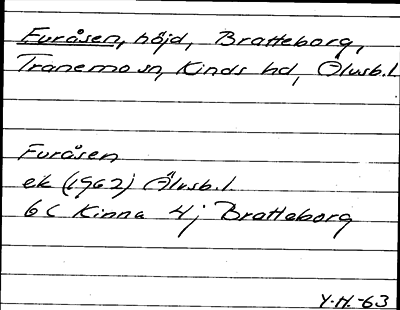 Furåsen, höjd, Bratteborg,
Tranemo sn, Kinds hd, Älvsb.l.
Furåsen
ek (1962) Älvsb.l.
6C Kinna 4j Bratteborg
Y.H.-63